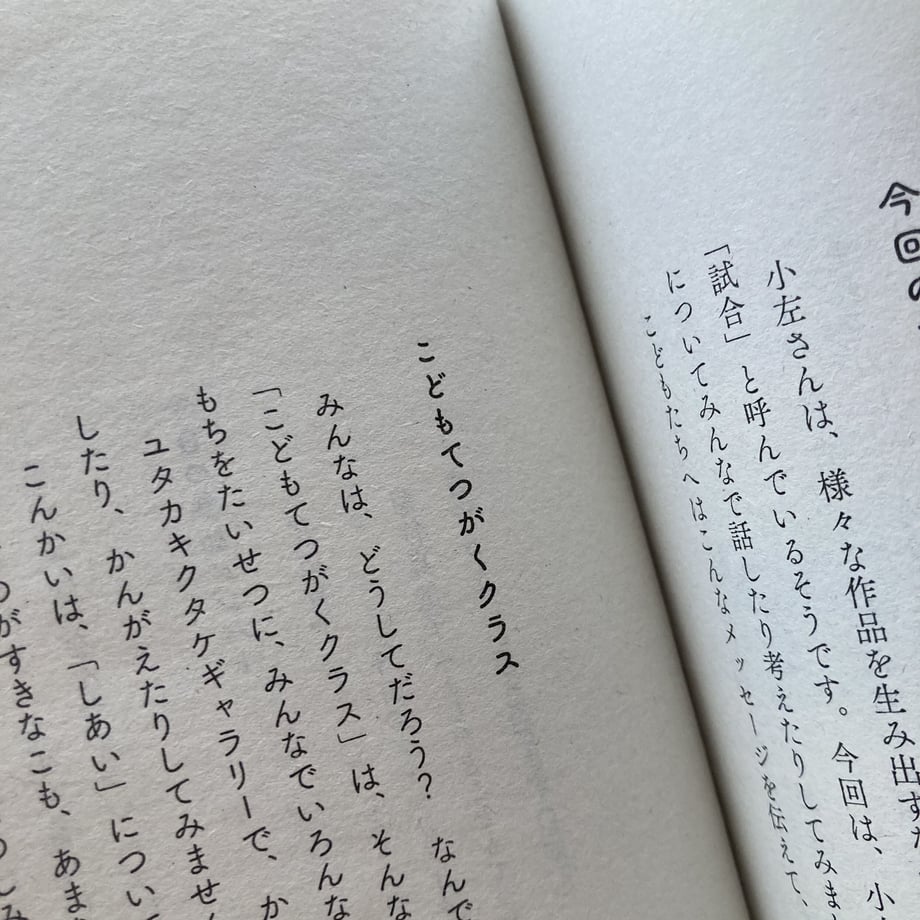 今回の
小左さんは、様々な作品を生み出す
「試合」と呼んでいるそうです。今回は、小
についてみんなで話したり考えたりしてみま
こどもたちへはこんなメッセージを伝えて、
こどもてつがくクラス
みんなは、どうしてだろう？　なんで
「こどもてつがくクラス」は、そんな
もちをたいせつに、みんなでいろんな
ユタカキクタケギャラリーで、か
したり、かんがえたりしてみません
こんかいは、「しあい」につい
がすきなこも、あま